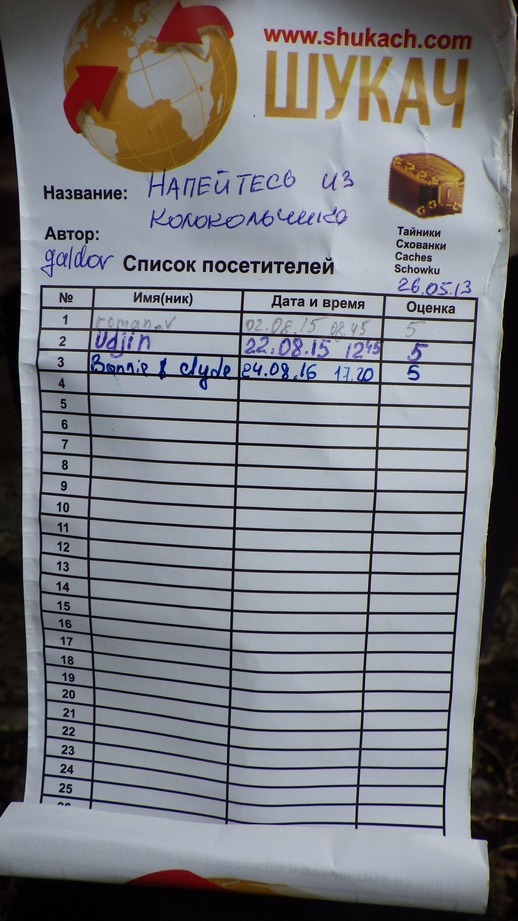 www.shukach.com
ШУКАЧ
Название: НАПЕЙТЕСЬ ИЗ
КОЛОКОЛЬЧИКА
Автор:
galdor
Тайники
Схованки
Caches
Schowku
Список посетителей
26.05.13
№ Имя(ник) Дата и время Оценка
1 roman-v 02.08.15 08.45 5
2 Udjin 22.08.15 12 45 5
3 Bonnie & Clyde 24.08.16 17.20 5
4
5
6
7
8
9
10
11
12
13
14
15
16
17
18
19
20
21
22
23
24
25